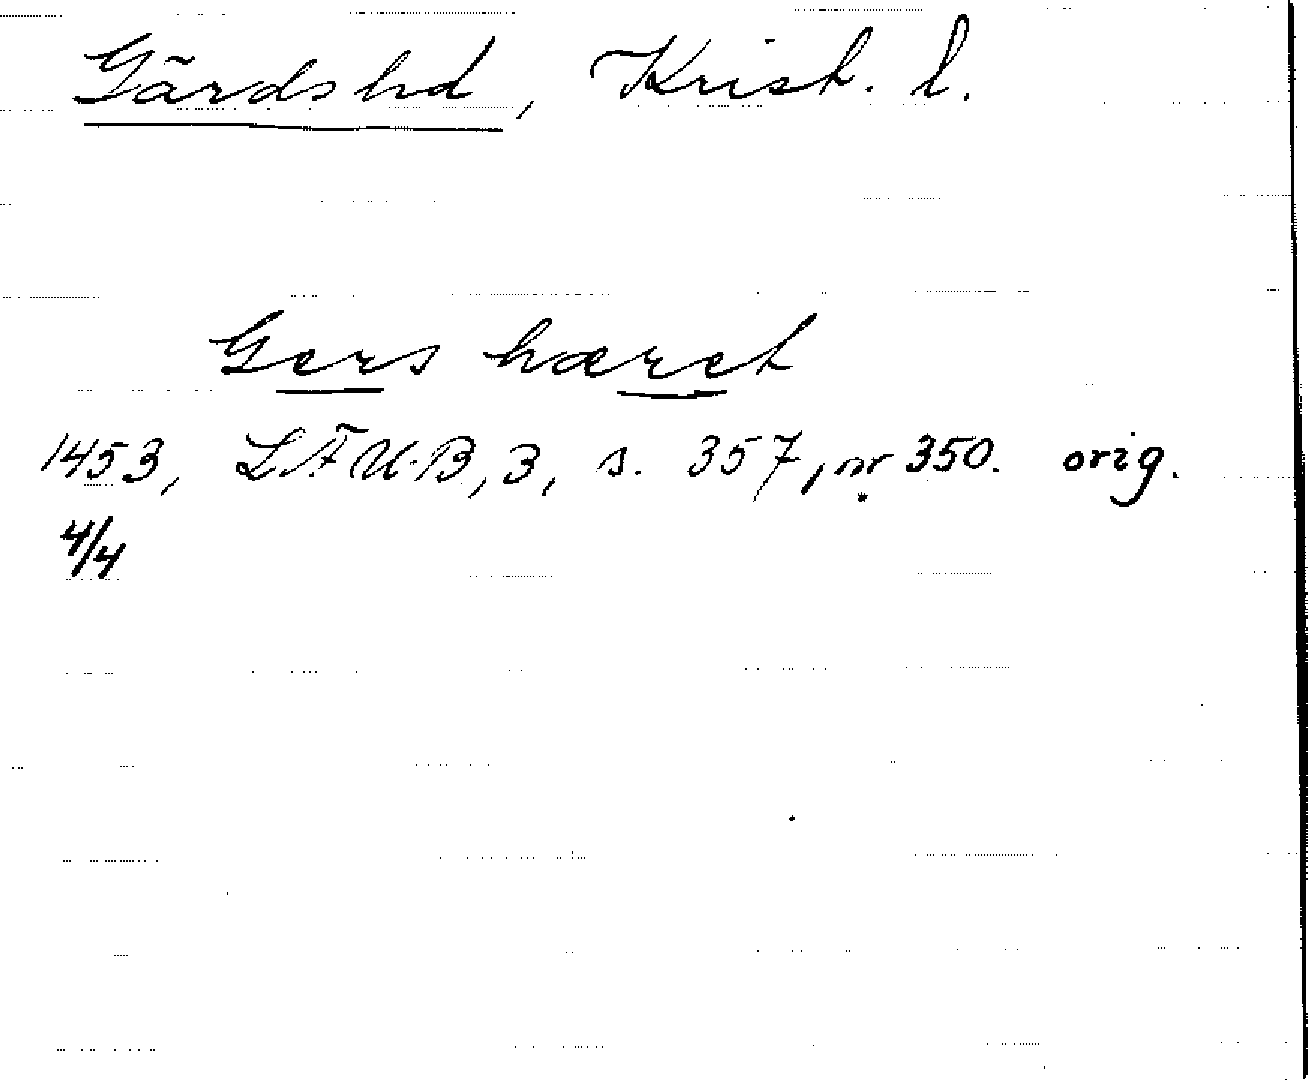 Gärds hd, Krist. l.
Gers hæret
1453, LÄUB, 3, s. 357, nr 350. orig.
4/4